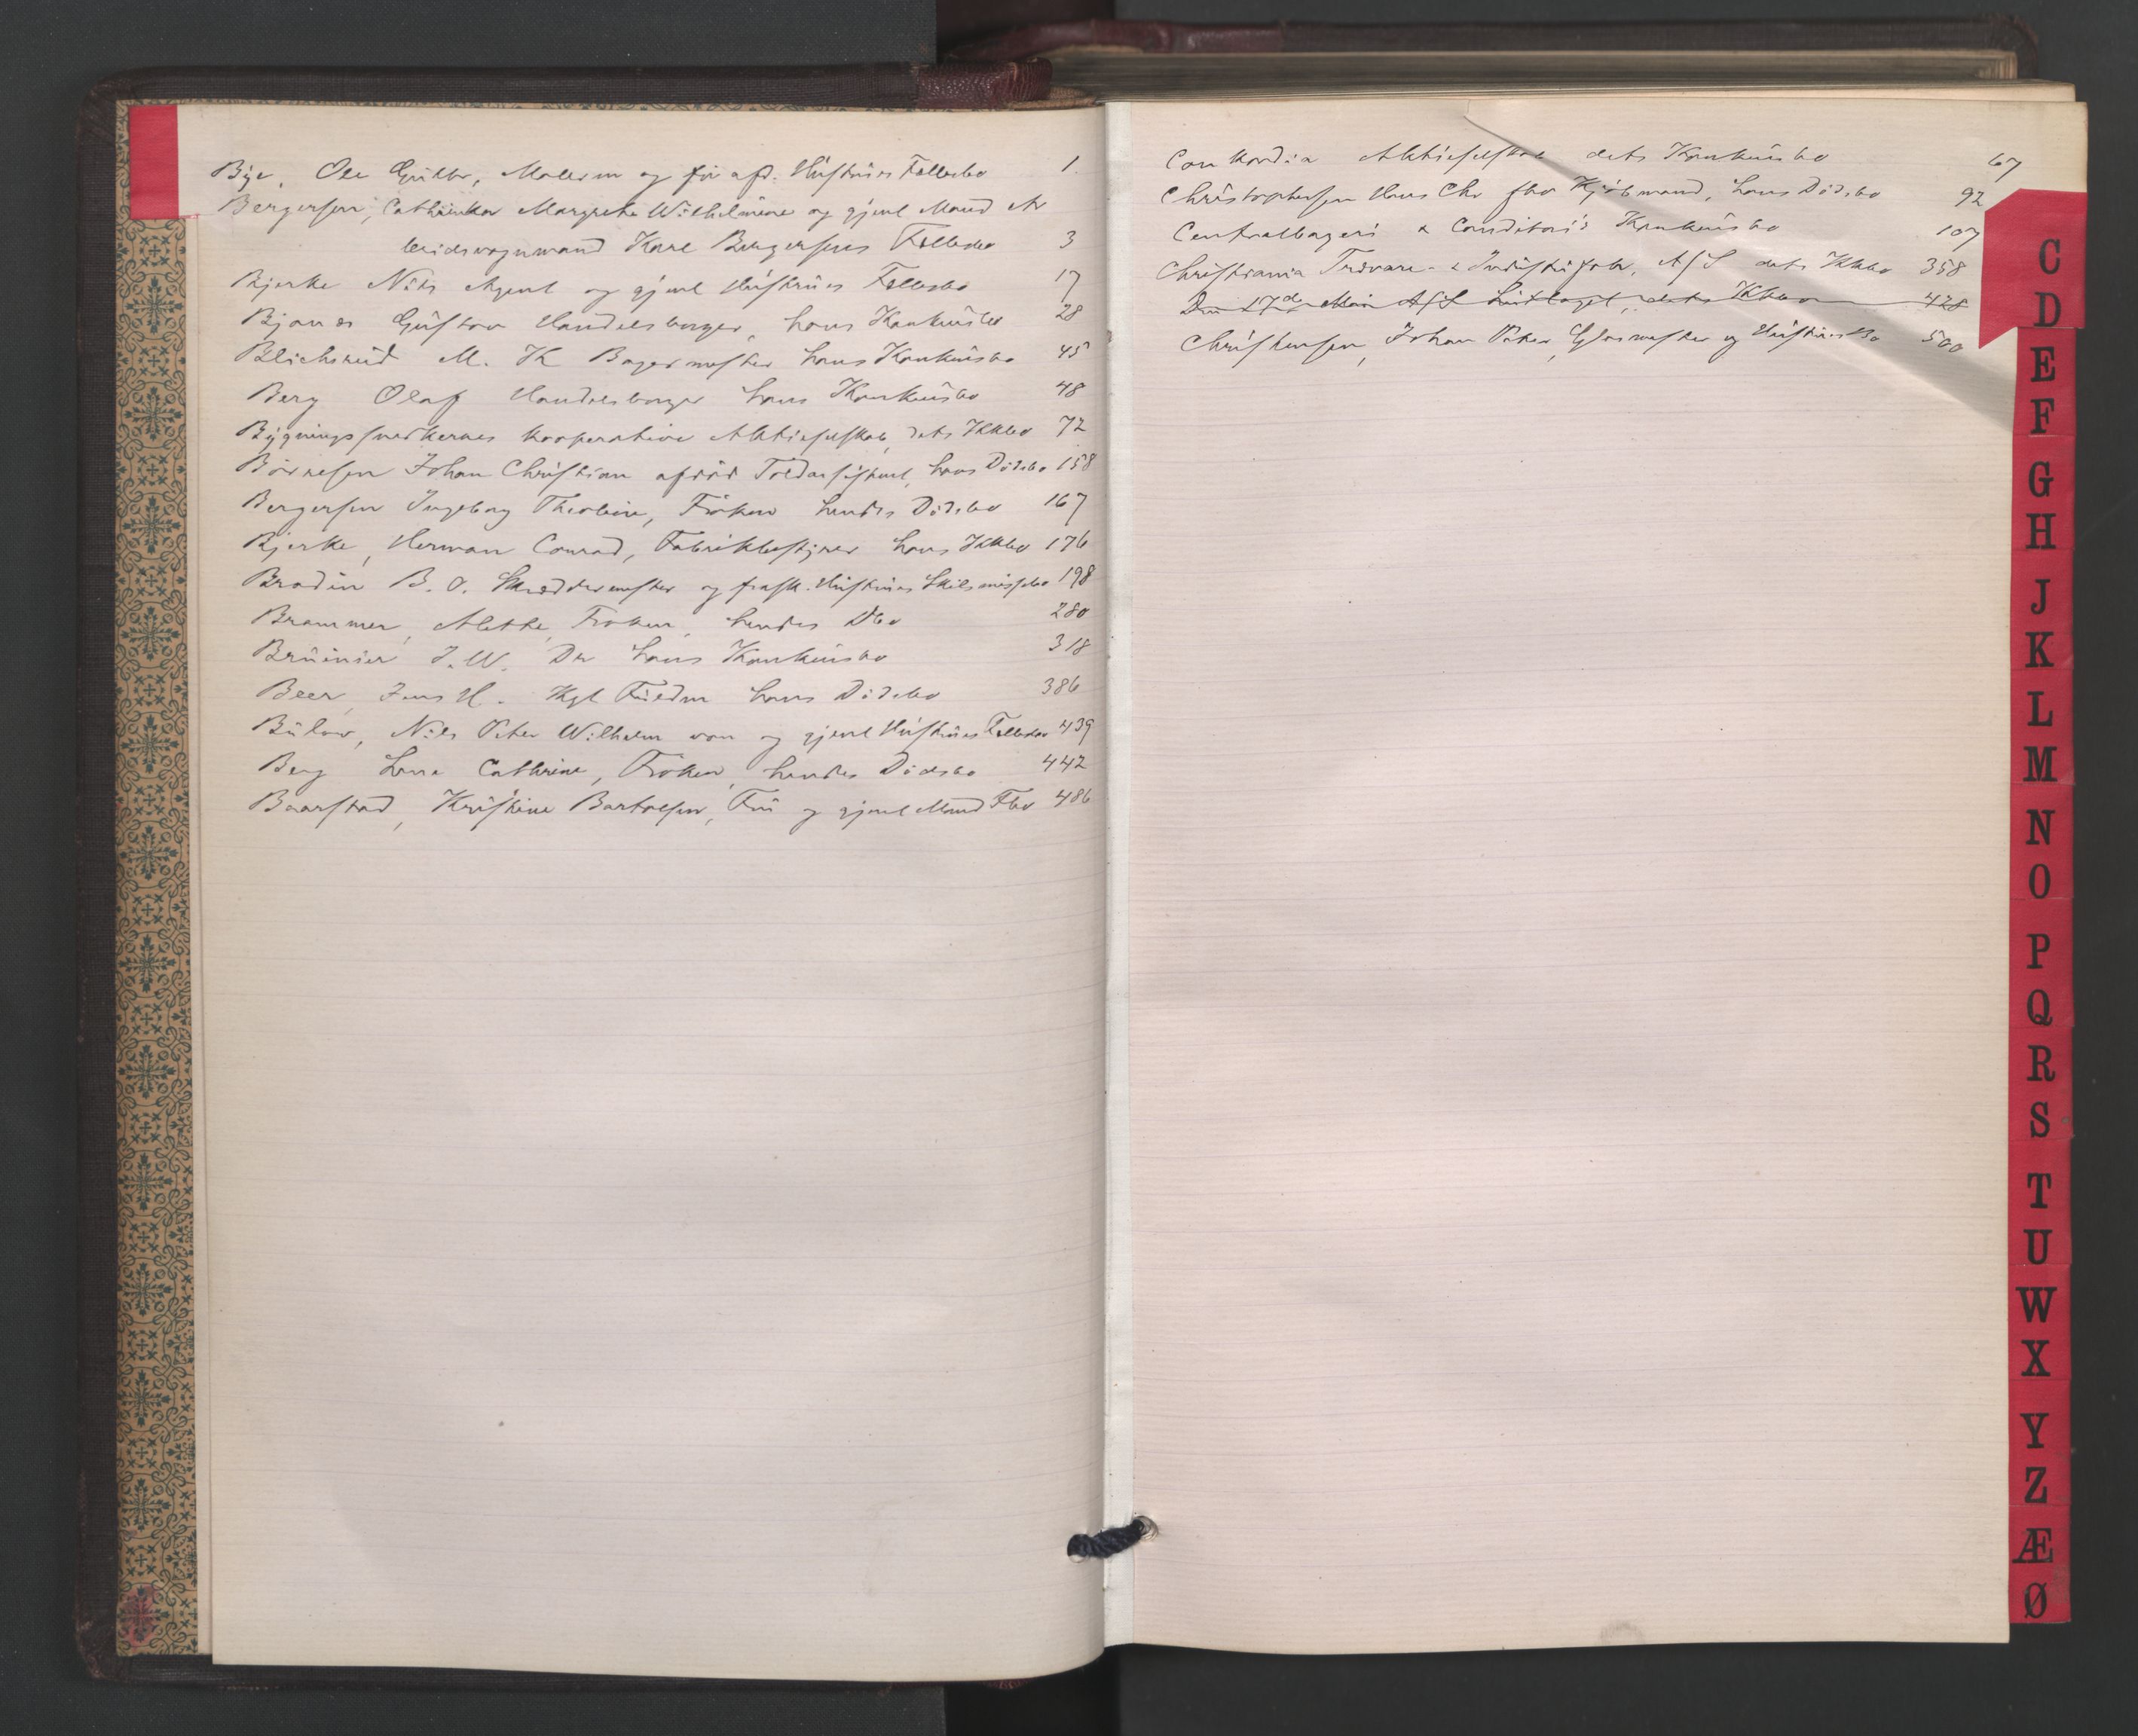 Bye, Ole Gulbr, Malerm og før afd. Hustrus Fællesbo 1.
Bergersen, Cathinka Margrethe Wilhelmine og gjenl Mand Ar
beidsvognmand Karl Bergersens Fællesbo 3
Bjerke Nils Agent og gjenl Hustrues Fællesbo 17
Bjonær Gustav Handelsborger, hans Konkursbo 28
Blichsrud M. K Bagermester hans Konkursbo 45
Berg Olaf Handelsborger hans Konkursbo 48
Bygningssnedkernes kooperative Aktieselskab, dets Kkbo 72
Börresen Johan Christian afdöd Toldassistent, hans Dödsbo 158
Bergersen Ingeborg Theoline, Fröken hendes Dödsbo 167
Bjerke, Herman Conrad, Fabrikbestyrer hans Kkbo 176
Brodin B. O. Skræddermester og frask. Hustrues Skilsmissebo 198
Brammer, Alethe, Fröken, hendes Dbo 280
Bruinier J. W. Dr hans Konkursbo 318
Beer, Jens H. Kgl Fuldm hans Dödsbo 386
Bülow, Nils Peter Wilhelm von og gjenl Hustrues Fællesbo 439
Berg Lina Cathrine, Fröken, hendes Dödsbo 442
Baarstad, Kristine Bartolsen, Fru og gjenl Mand Fbo 486
Conkordia Aktieselskab dets Konkursbo 67
Christophersen Hans Chr fhv Kjöbmand, hans Dödsbo 92
Centralbageri & Conditori's Konkursbo 107
Christiania Trævare- & Industrifabr, A/S dets Kkbo 358
Den 17de Mai A/S dets Kkbo 428
Christensen, Johan Peter, Glasmester og Hustrues Bo 500
C
D
E
F
G
H
J
K
L
M
N
O
P
Q
R
S
T
U
W
X
Y
Z
Æ
Ø